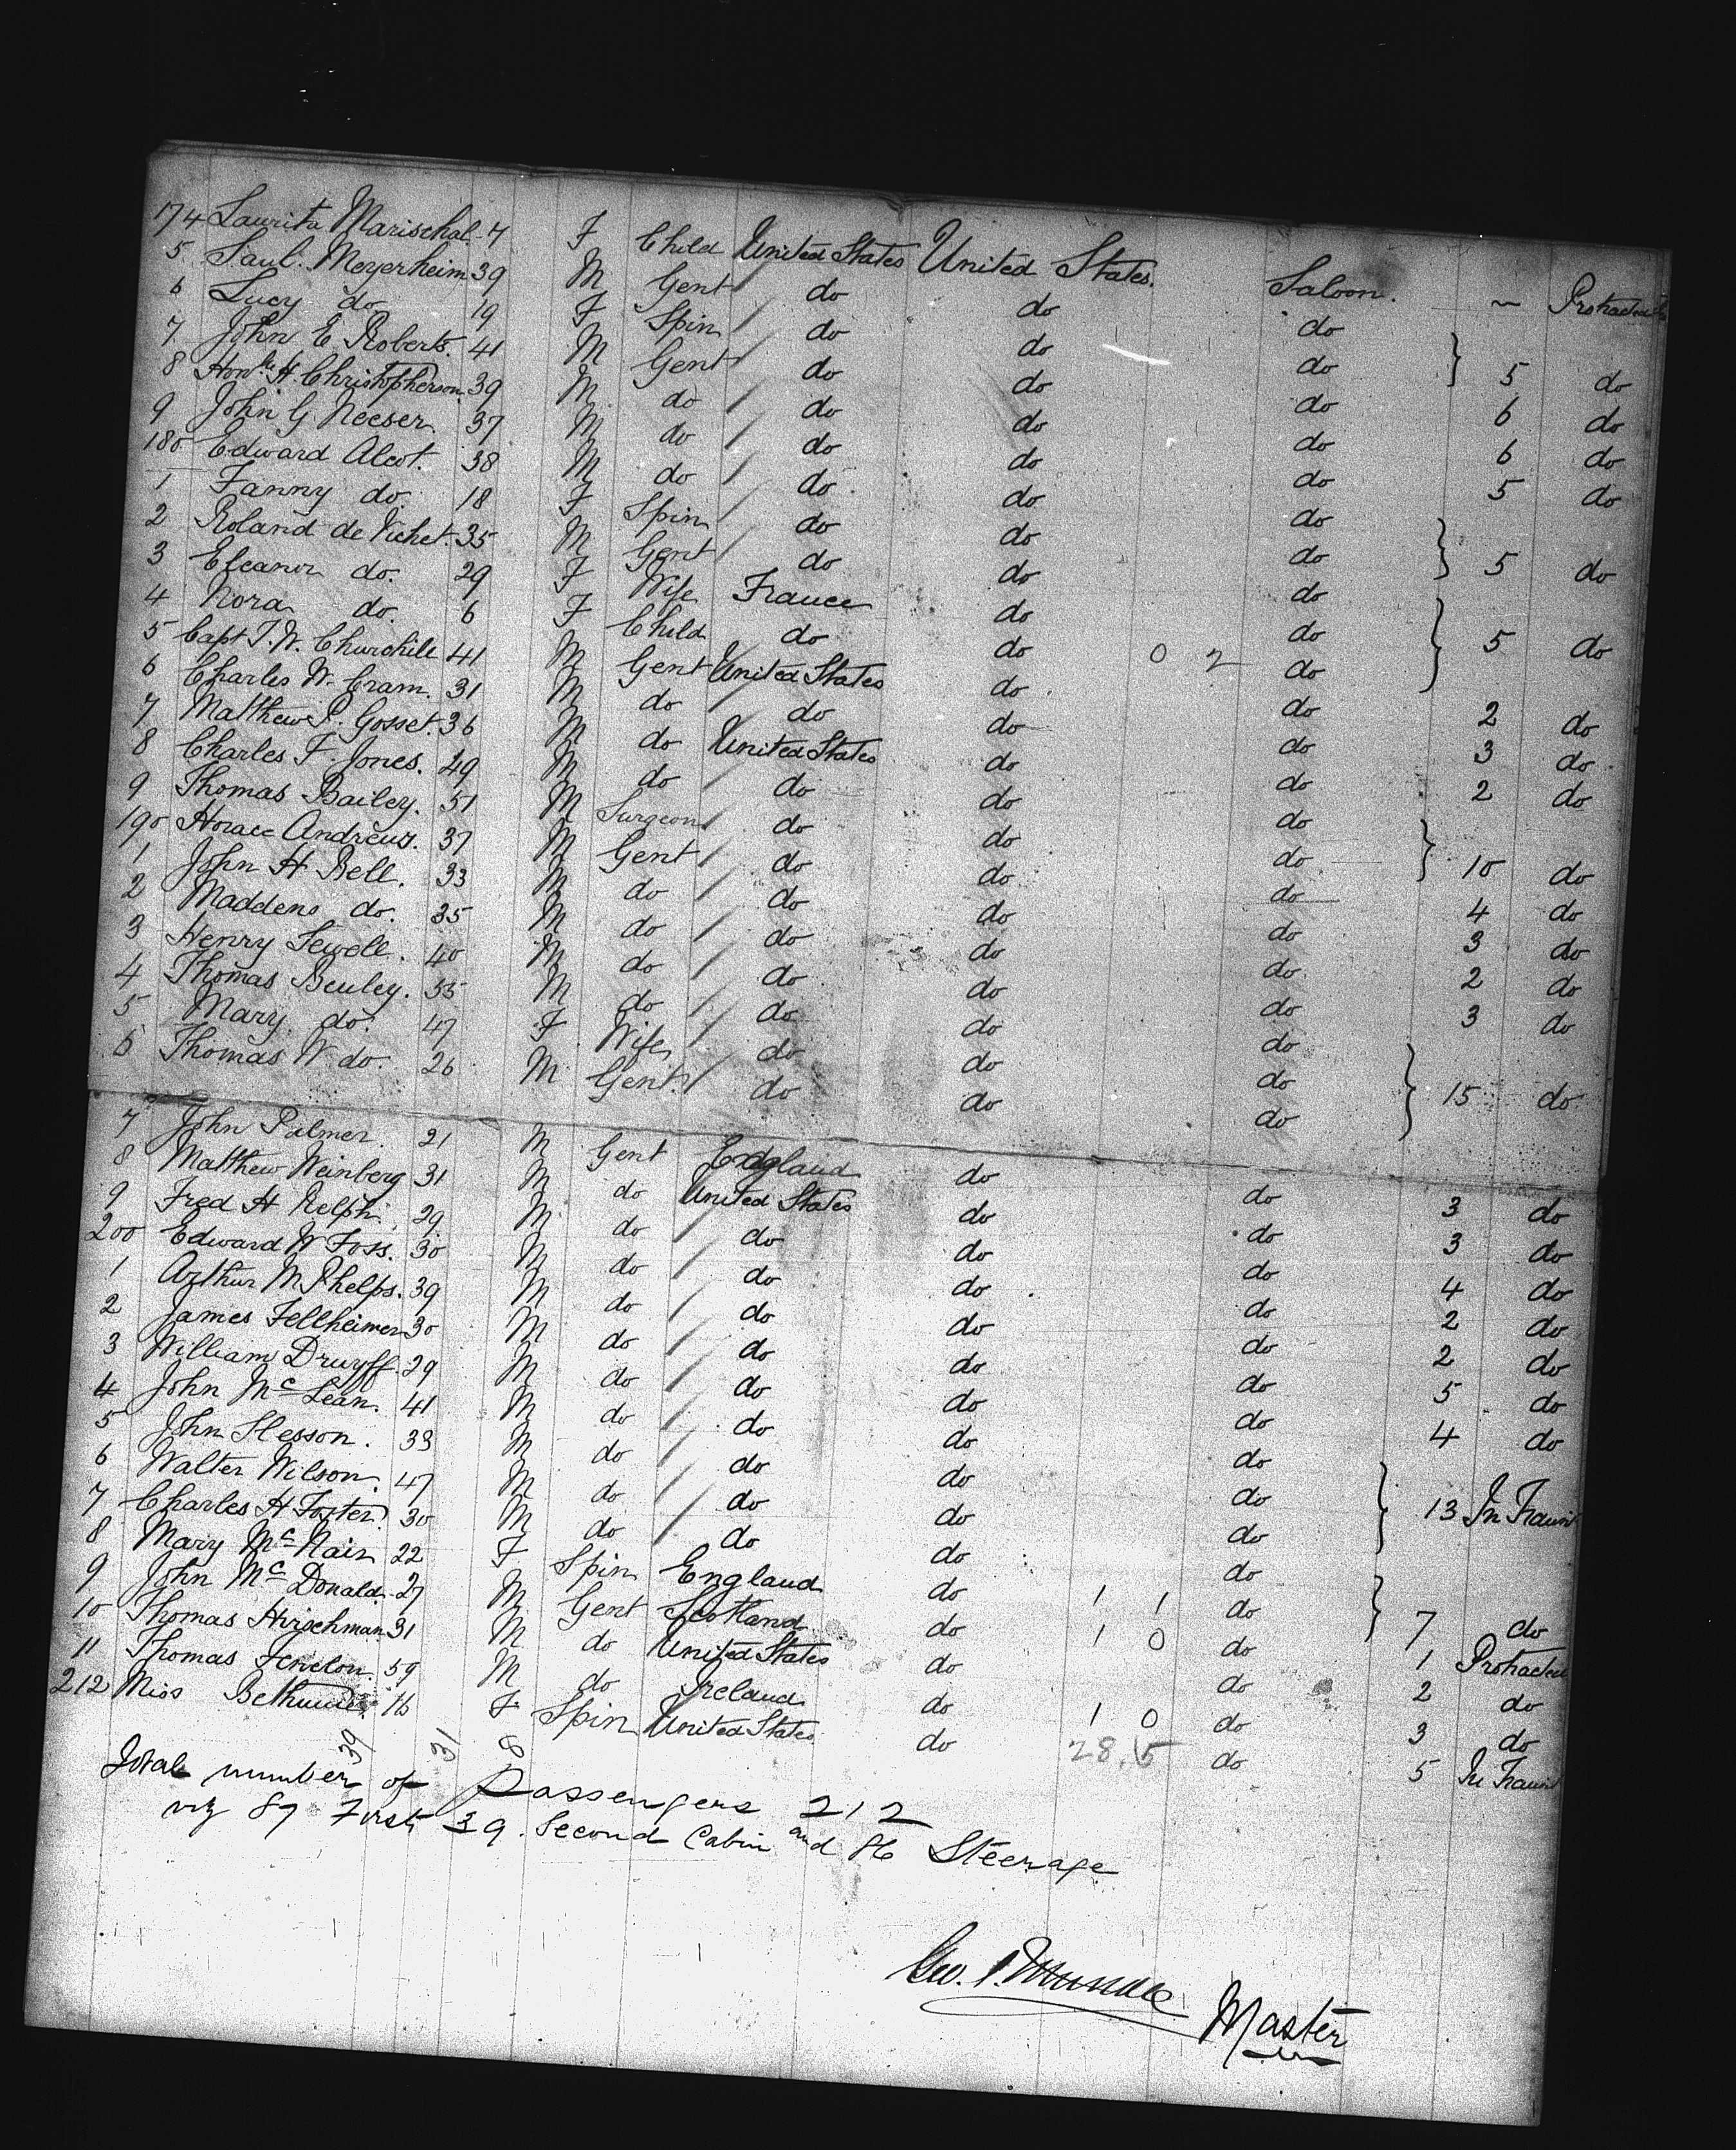 174 Laurita Marischal 7 F Child United States United States. Saloon. ~ Protracted
5 Saul. Meyerheim 39 M Gent do do do
6 Lucy do 19 F Spin do do do } 5 do
7 John E Roberts. 41 M Gent do do do 6 do
8 Honble H. Christopherson 39 M do do do do 6 do
9 John G Neeser. 37 M do do do do 5 do
180 Edward Alcot. 38 M do do do do
1 Fanny do. 18 F Spin do do do } 5 do
2 Roland de Vichet. 35 M Gent do do do
3 Eleanor do. 29 F Wife France do do } 5 do
4 Nora do. 6 F Child do do 0 2 do
5 Capt T. W. Churchill 41 M Gent United States do do 2 do
6 Charles W. Cram. 31 M do do do do 3 do
7 Matthew P. Gosset. 36 M do United States do do 2 do
8 Charles F. Jones. 49 M do do do do
9 Thomas Bailey. 51 M Surgeon do do do } 10 do
190 Horace Andrews. 37 M Gent do do do 4 do
1 John H Bell. 33 M do do do do 3 do
2 Maddens do. 35 M do do do do 2 do
3 Henry Sewell. 40 M do do do do 3 do
4 Thomas Beuley. 55 M do do do do
5 Mary do. 47 F Wife do do do } 15 do
6 Thomas W. do. 26 M Gent. do do do
7 John Palmer. 21 M Gent England do do 3 do
8 Matthew Weinberg 31 M do United States do do 3 do
9 Fred H Relph 29 M do do do do 4 do
200 Edward W Foss. 30 M do do do do 2 do
1 Arthur M Phelps. 39 M do do do do 2 do
2 James Fellheimer 30 M do do do do 5 do
3 William Druyff. 29 M do do do do 4 do
4 John Mc Lean. 41 M do do do do
5 John Slesson. 33 M do do do do } 13 In Transit
6 Walter Wilson. 47 M do do do do
7 Charles H Foster. 30 M do do do do
8 Mary Mc Nair 22 F Spin England do 1 1 do } 7 do
9 John Mc Donald. 27 M Gent Scotland do 1 0 do 1 Protracted
10 Thomas Hirschman 31 M do United States do do 2 do
11 Thomas Fenelon. 59 M do Ireland do 1 0 do 3 do
212 Miss Bethune. 16 F Spin United States do do 5 In Transit
39 31 8 28.5
Total number of Passengers 212
viz 87 First 39. Second Cabin and 86 Steerage
Geo.
Master